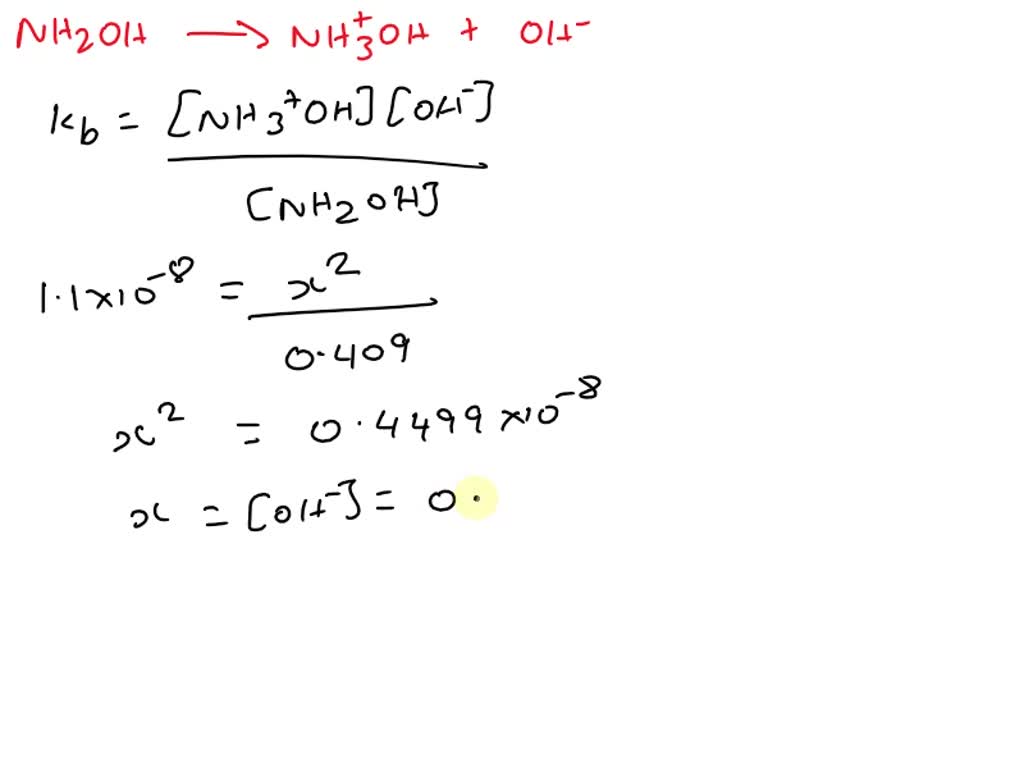 NH2OH → NH3+OH + OH-
Kb = [NH3+OH][OH-]
[NH2OH]
1.1×10-8 = x2
0.409
x2 = 0.4499×10-8
x = [OH-] = 0.